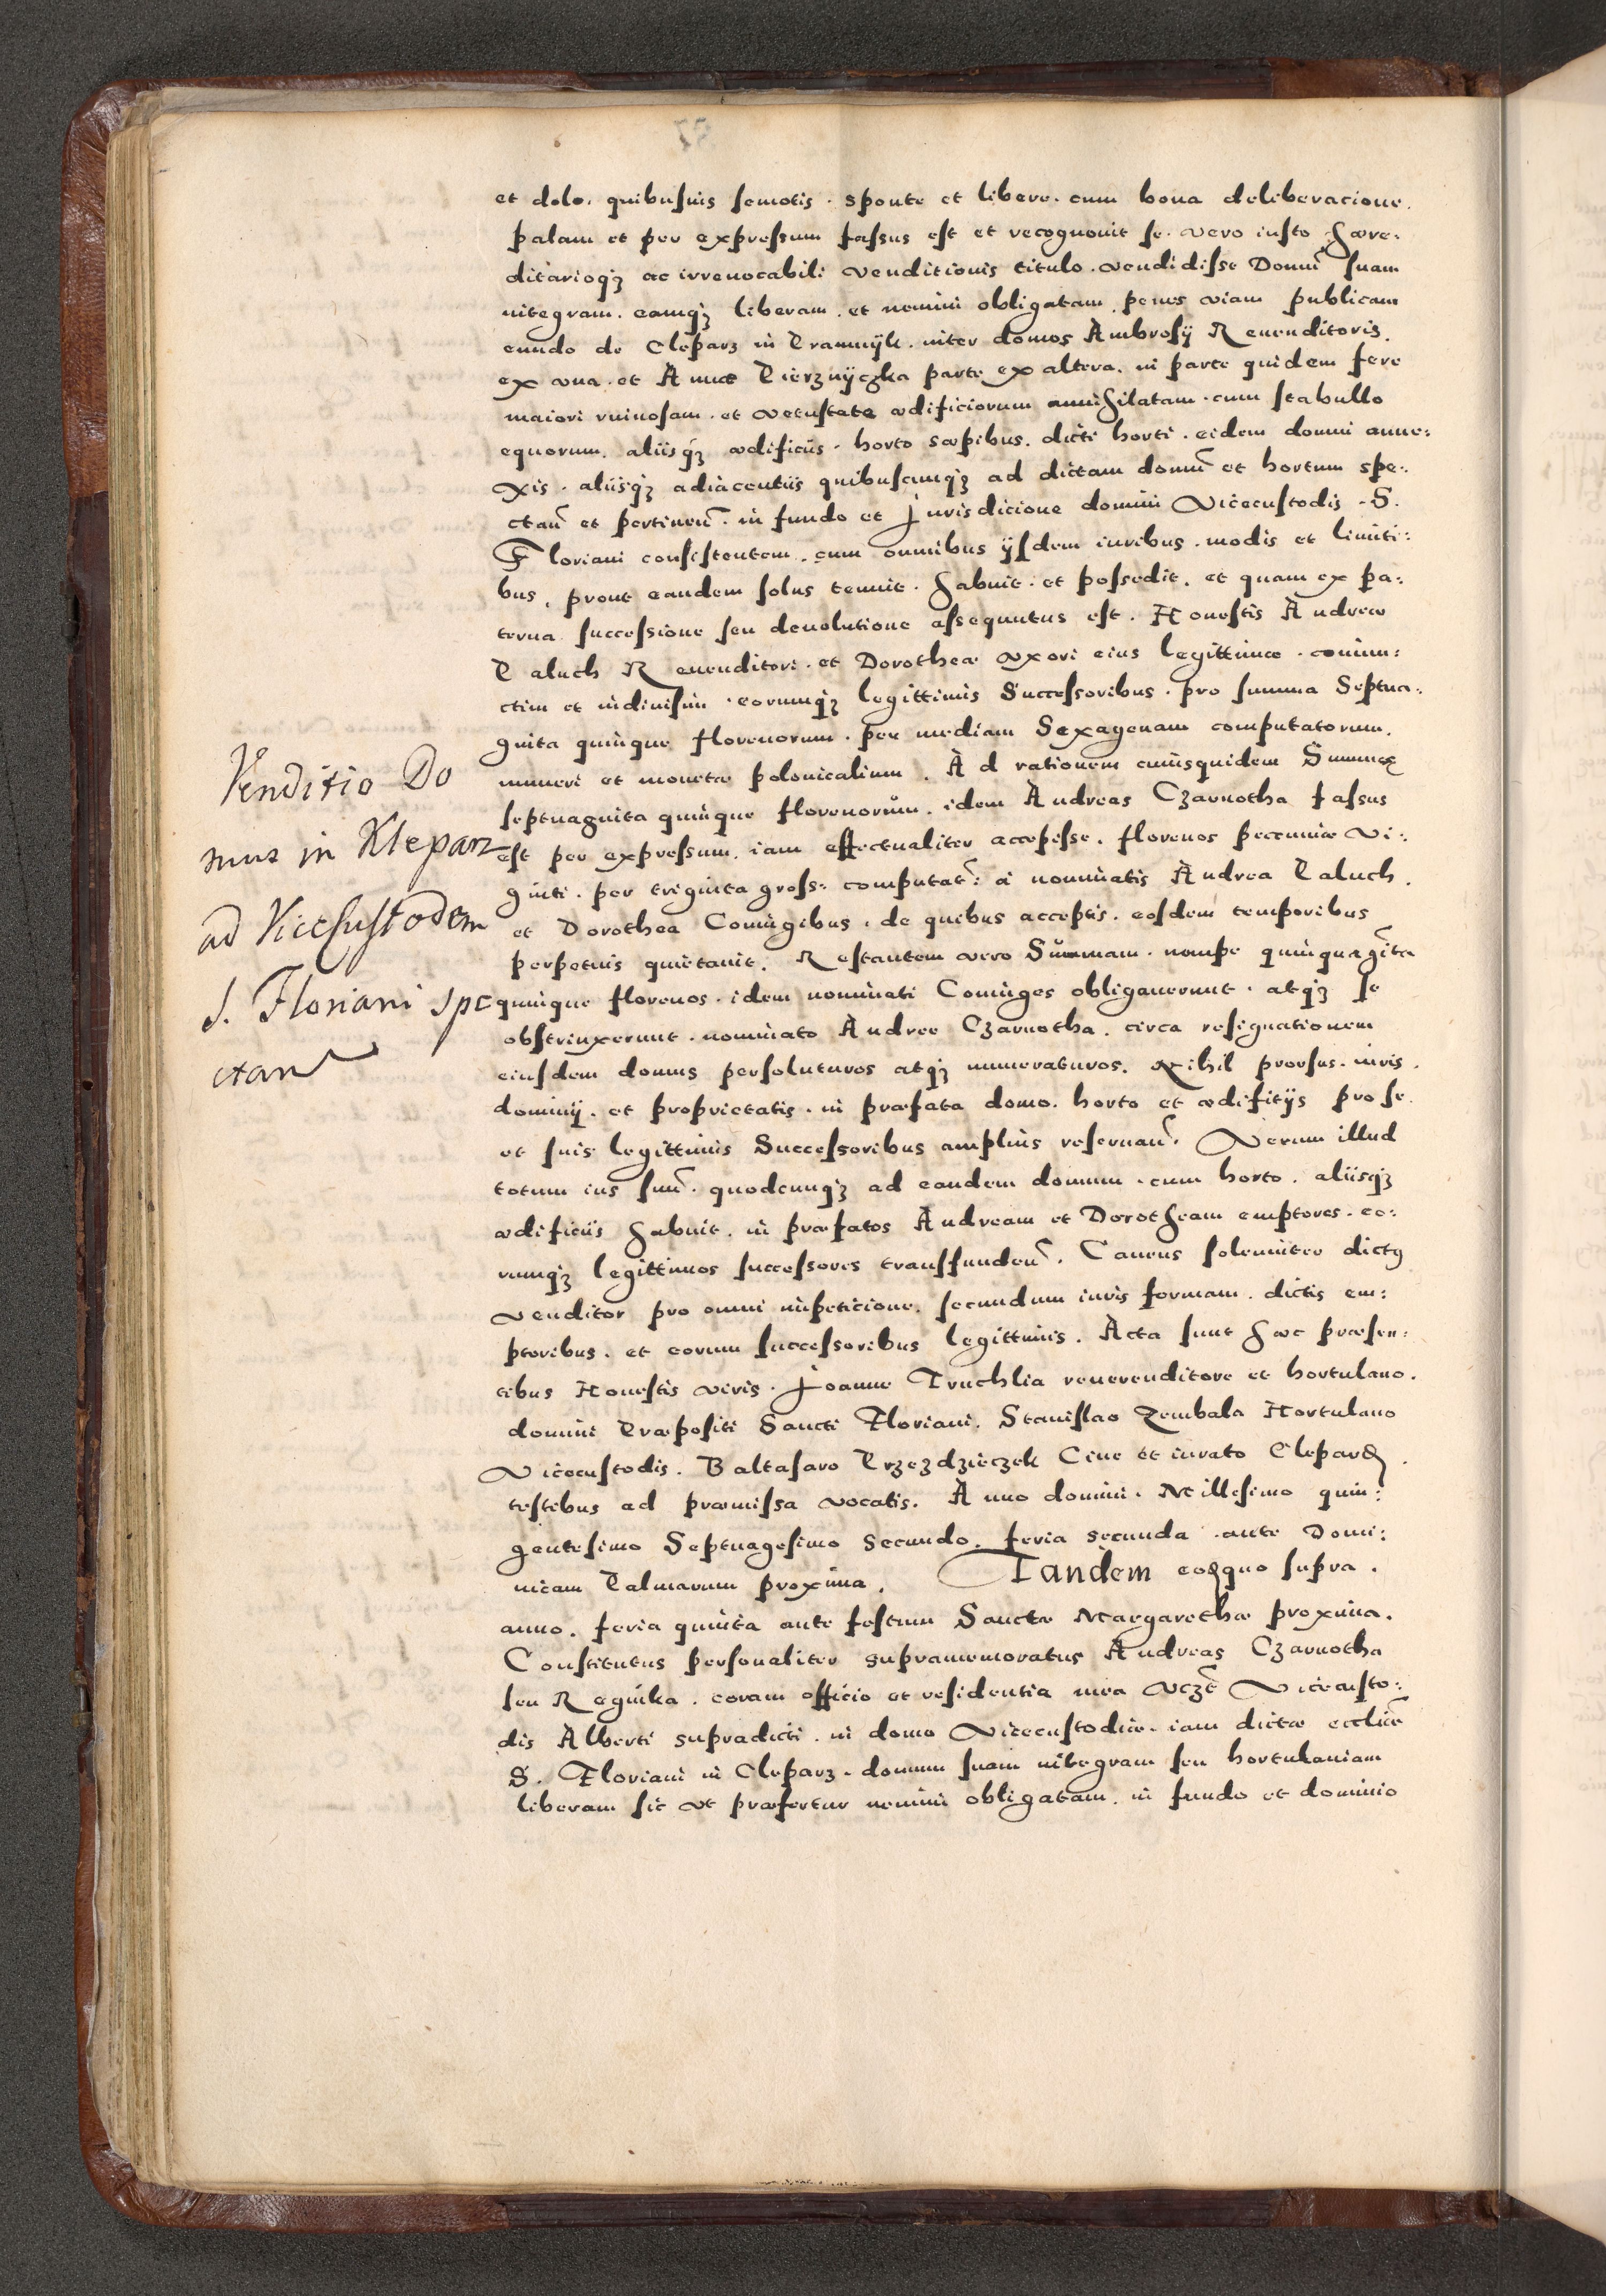 et dolo. quibusuis semotis. sponte et libere. cum bona deliberacione.
palam et per expressum fassus est et recognouit se. vero iusto hære:
ditarioq₃ ac irreuocabili venditionis titulo. vendidisse Domū suam
integram. eamq₃ liberam. et nemini obligatam. penes viam publicam
eundo de Cleparz in Pramnijk. inter domos Ambrosÿ Reuenditoris.
ex vna. et Annæ Pierznÿczka parte ex altera. in parte quidem fere
maiori ruinosam. et vetustate ædificiorum annihilatam. cum stabullo
equorum. aliisq₃ ædificiis. horto sæpibus. dicti horti. eidem domui anne:
xis. aliisq₃ adiacentiis quibuscunq₃ ad dictam domū et hortum spe:
ctan̄ et pertinen̄. in fundo et Jurisdicione domini Vicecustodis. S.
Floriani consistentem. cum omnibus ÿsdem iuribus. modis et limiti:
bus. prout eandem solus tenuit. habuit. et possedit. et quam ex pa:
terna successione seu deuolutione assequutus est. Honestis Andreæ
Paluch Reuenditori. et Dorotheæ vxori eius legittimæ. coniun:
ctim et indiuisim. eorumq₃ legittimis Successoribus. pro summa Septua:
ginta quinque florenorum. per mediam Sexagenam computatorum.
numeri et monetæ polonicalium. Ad rationem cuiusquidem Summæ
septuaginta quinque florenorum. idem Andreas Czarnotha fassus
est per expressum. iam effectualiter accepisse. florenos pecuniæ vi:
ginti. per triginta gross: computat̄: a nominatis Andrea Paluch.
et Dorothea Coniugibus. de quibus acceptis. eosdem temporibus
perpetuis quietauit. Restantem vero Summam. nempe quinquagīta
quinque florenos. idem nominati Coniuges obligauerunt. atq₃ se
obstrinxerunt. nominato Andreæ Czarnotha. circa resignationem
eiusdem domus persoluturos atq₃ numeraturos. Nihil prorsus. iuris.
dominÿ. et proprietatis. in præfata domo. horto et ædifitÿs pro se.
et suis legittimis Successoribus amplius reseruan̄. Verum illud
totum ius suū. quodcunq₃ ad eandem domum. cum horto. aliisq₃
ædificiis habuit. in præfatos Andream et Dorotheam emptores. eo:
rumq₃ legittimos successores transfunden̄. Cauens solenniter dictꝯ
venditor pro omni impeticione. secundum iuris formam. dictis em:
ptoribus. et eorum successoribus legittimis. Acta sunt hæc præsen:
tibus Honestis viris. Joanne Truchlia reuerenditore et hortulano.
domini Præpositi Sancti Floriani. Stanislao Zembala Hortulano
Vicecustodis. Baltasaro Przezdzieczek Ciue et iurato Clepar₃.
testibus ad præmissa vocatis. Anno domini. Millesimo quin:
gentesimo Septuagesimo secundo. feria secunda. ante Domi:
nicam Palmarum proxima. Tandem eoq̨quo supra.
anno. feria quinta ante festum Sanctæ Margarethæ proxima.
Constitutus personaliter supramemoratus Andreas Czarnotha
seu Reginka. coram officio et residentia mea Vczē Vicecusto:
dis Alberti supradicti. in domo Vicecustodiæ. iam dictæ eccliæ
S. Floriani in Cleparz. domum suam integram seu hortulaniam
liberam sic vt præfertur nemini obligatam. in fundo et dominio
Venditio Do
mus in Kleparz
ad Vicecustodem
S. Floriani spe
ctan